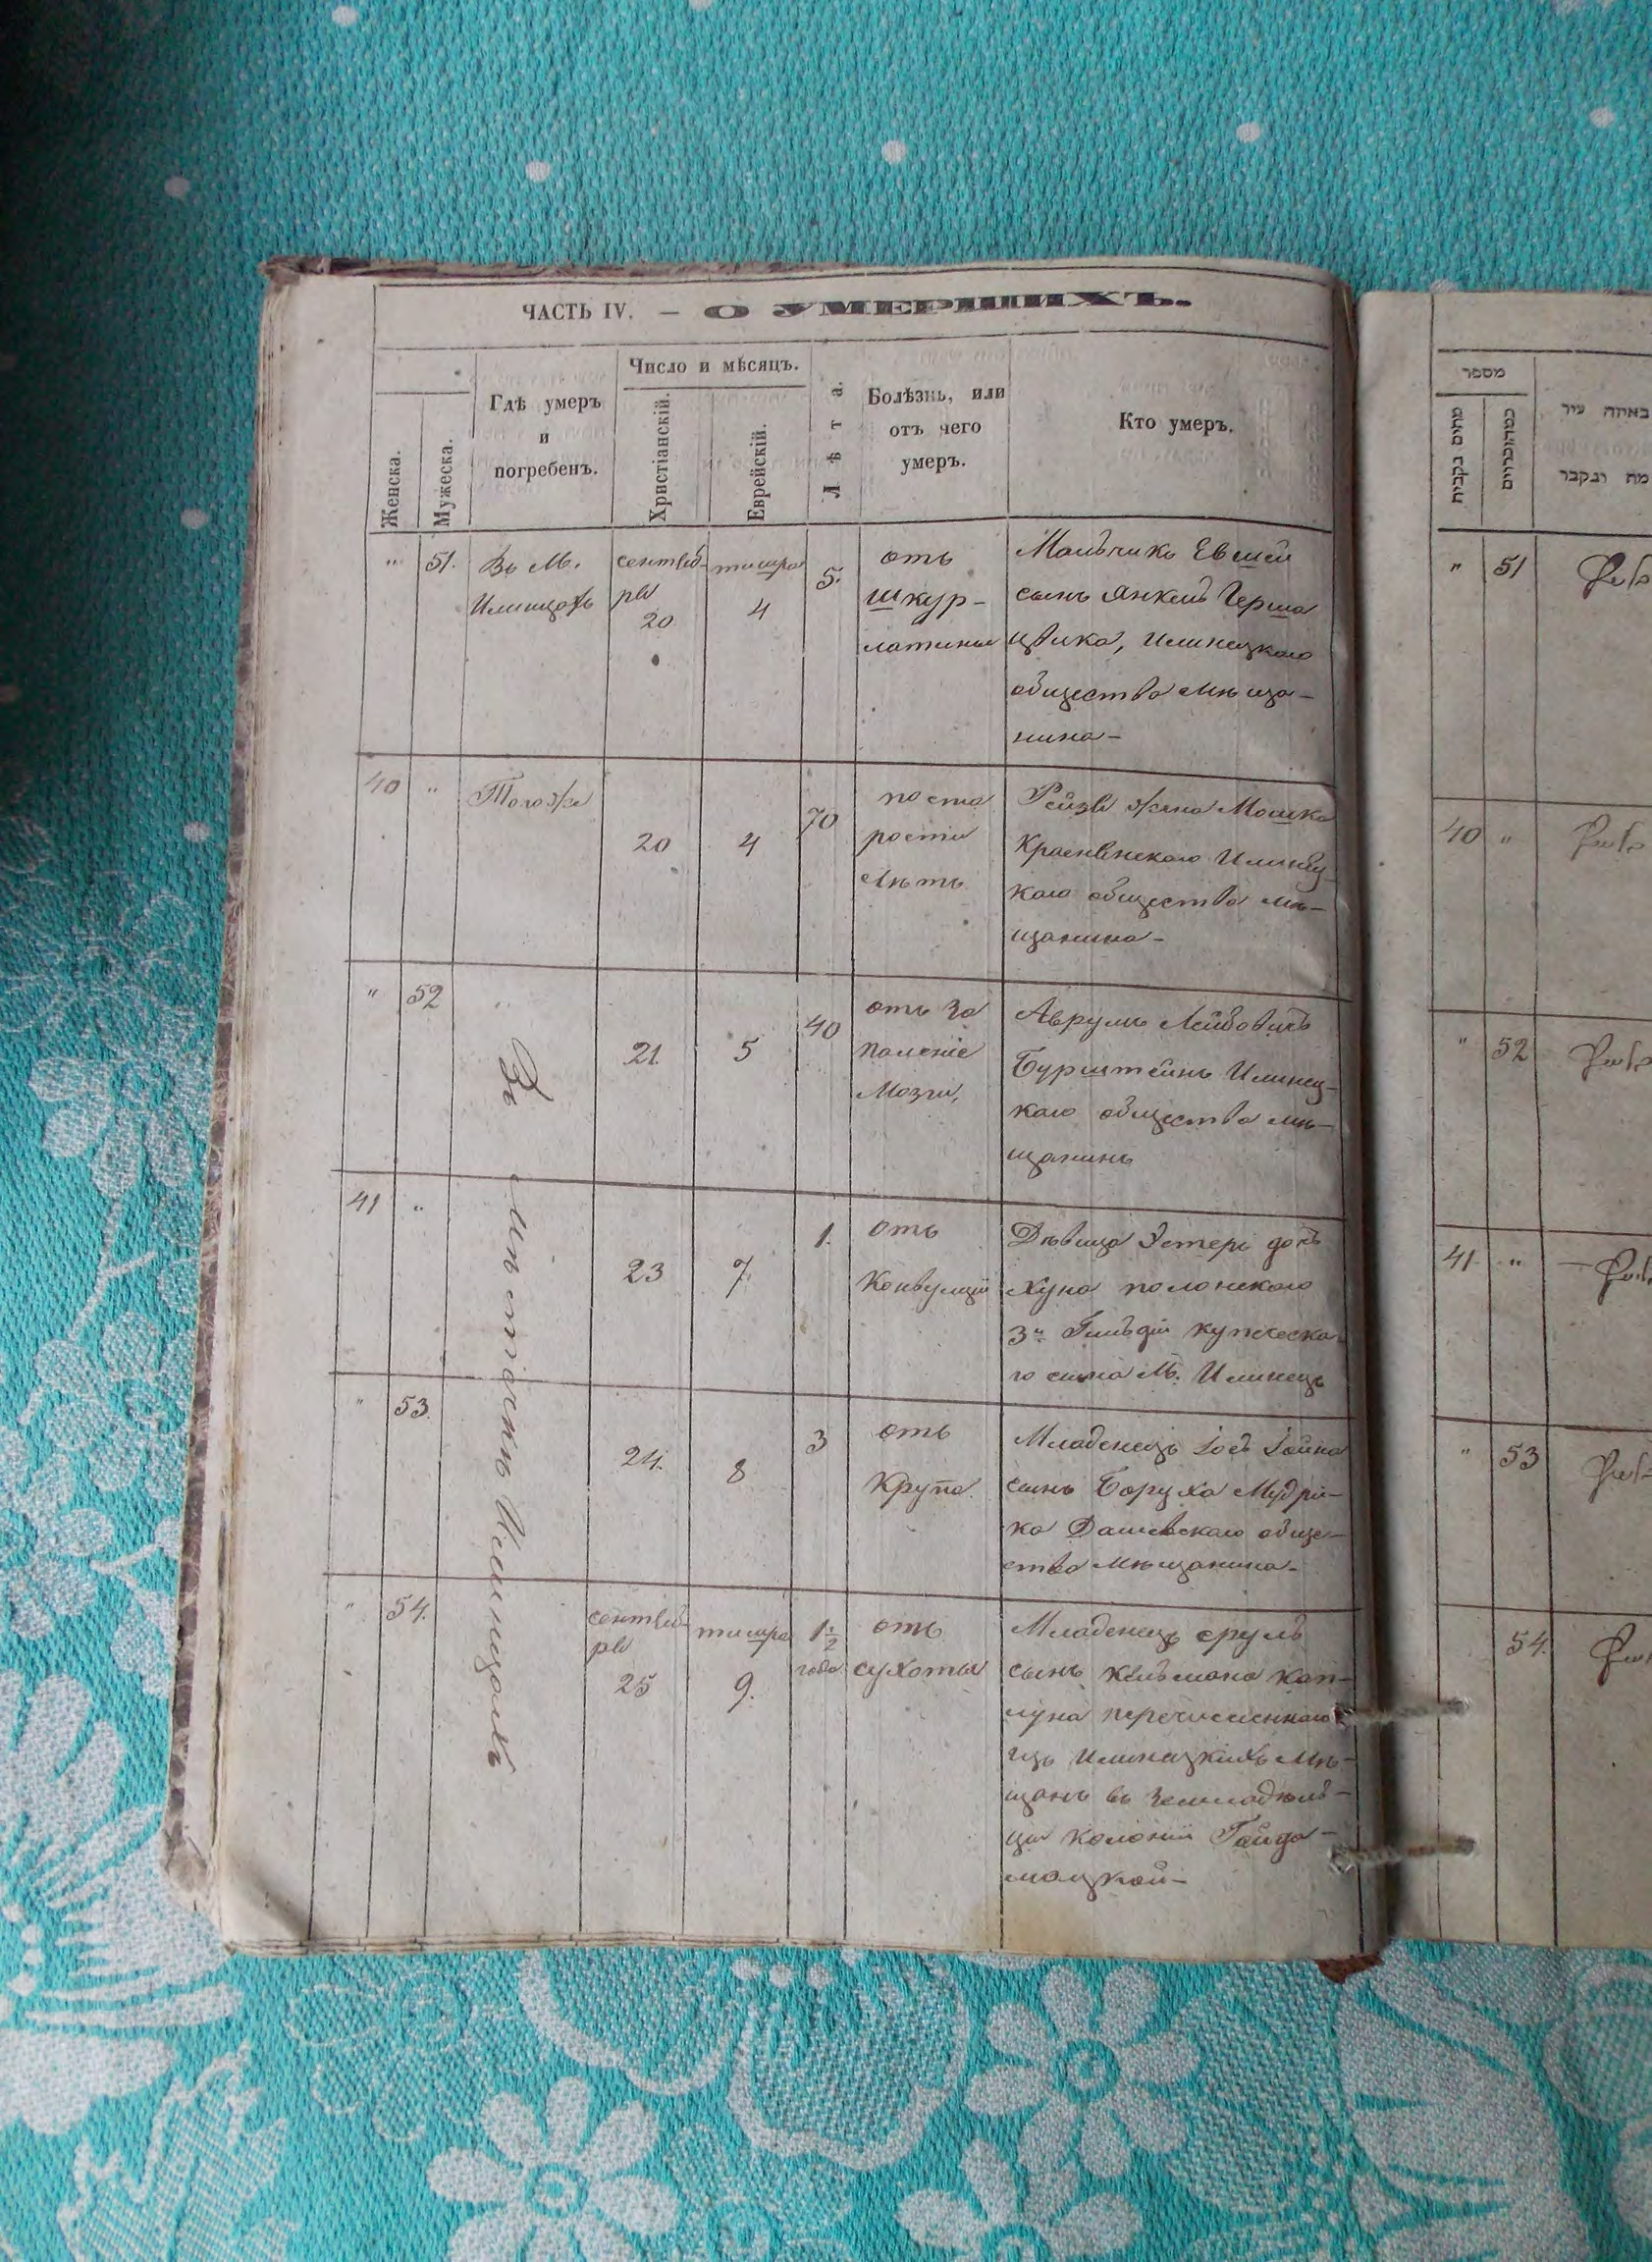 ЧАСТЬ IV. — О УМЕРШИХЪ.
Женска.
Мужеска.
Гдѣ умеръ
и
погребенъ.
Число и мѣсяцъ.
Христіанскій.
Еврейскій.
Лѣта.
Болѣзнь, или
отъ чего
умеръ.
Кто умеръ.
" 51.
Въ М.
Илинцахъ
сентяб-
ря
20
тишра
4
5.
отъ
шкур-
латины
Мальчикъ Евшей
сынъ Янкеля Герша
Цвика, Илинецкаго
общества мѣща-
нина-
40 "
Тогоже
20
4
70
по ста
рости
лѣтъ
Рейзя жена Мошка
Краснянскаго Илинец-
каго общества мѣ-
щанина-
" 52
21.
5
40
отъ За
паленіе
Мозги.
Аврумъ Лейбовичъ
Бурштейнъ Илинец-
каго общества мѣ-
щанинъ
Въ мѣстечкѣ Илинцахъ
41 "
23
7.
1.
отъ
Конвульціи
Дѣвица Эстеръ дочь
Хуна Полонскаго
3й Гильдіи купческа-
го сына М. Илинецъ
" 53.
24.
8
3
отъ
Крупа.
Младенецъ Іось Іойна
сынъ Боруха Мудри-
ка Дашевскаго обще-
ства мѣщанина-
" 54.
сентяб-
ря
25
тишра
9.
1½
года
отъ
сухоты
Младенецъ Сруль
сынъ Кельмана Кап-
луна перечисленнаго
изъ Илинецкихъ мѣ-
щанъ въ Земледѣль-
цы колоніи Гайда-
мацкой-
מספר
מתים נקבות
באיזה עיר
מת ונקבר
" 51
40 "
" 52
41. "
" 53
54.